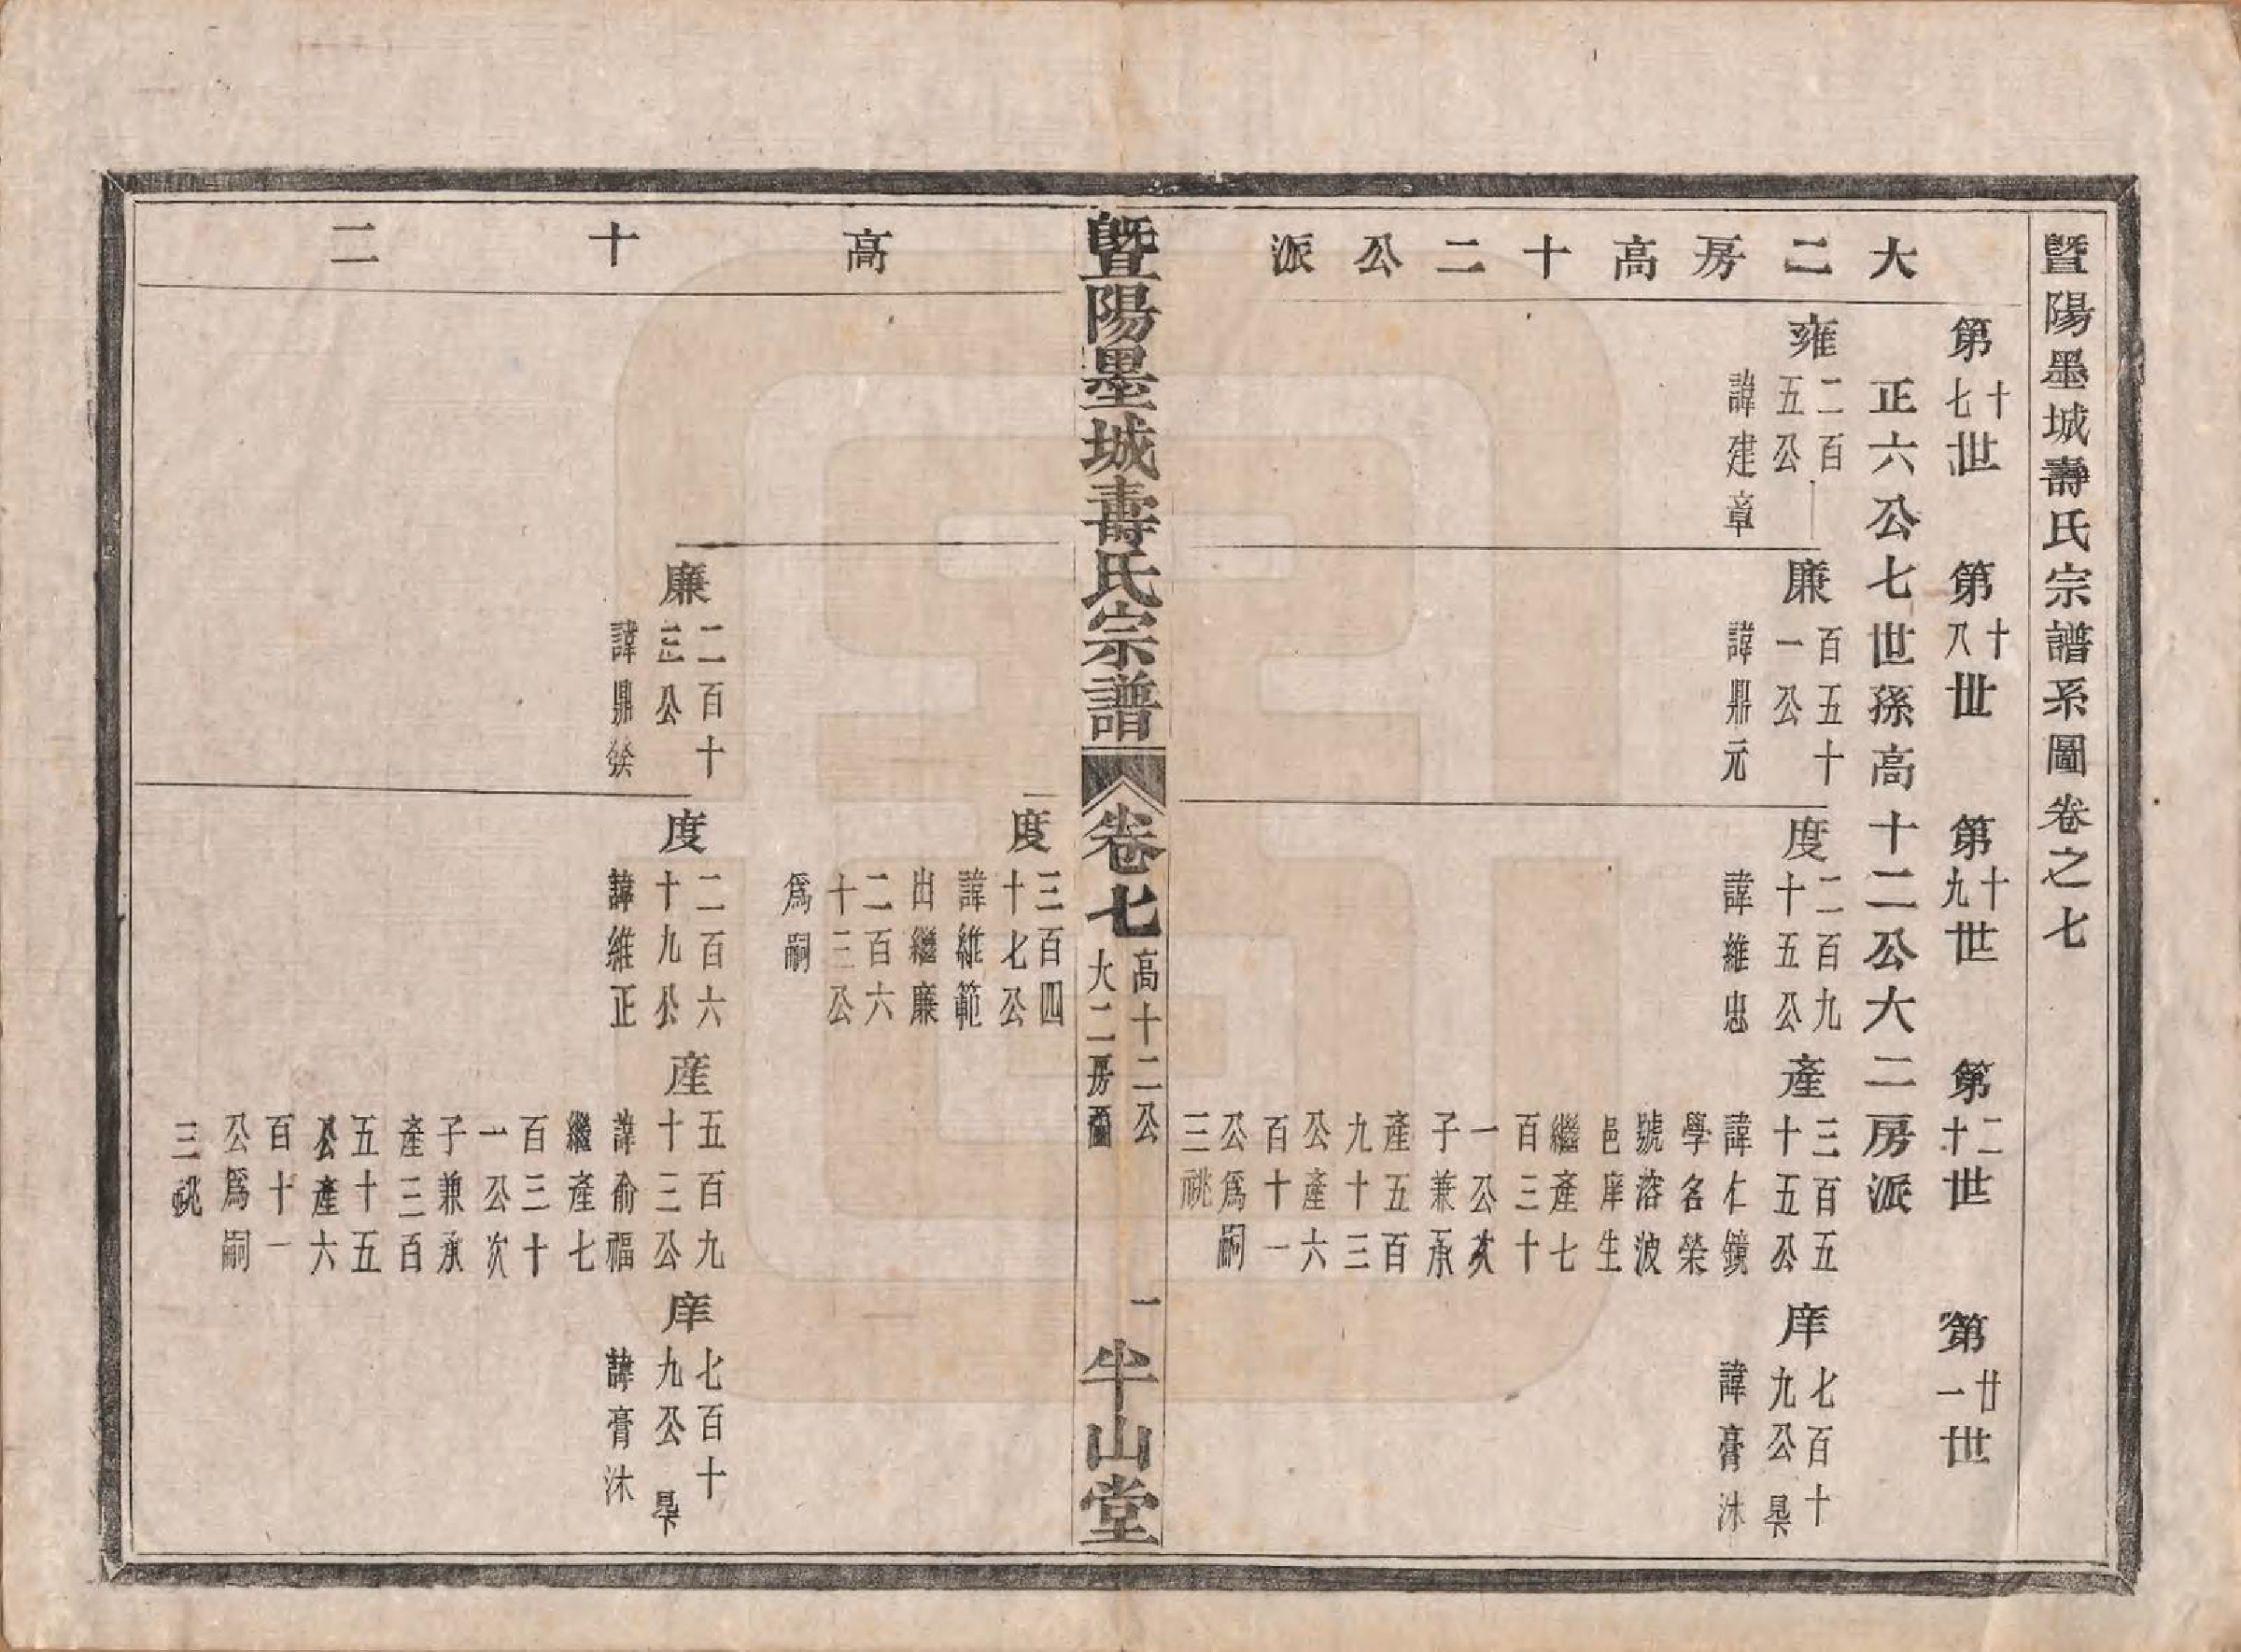 暨陽墨城壽氏宗譜系圖卷之七
大二房高十二公派
第十七世
第十八世
第十九世
第二十世
第廿一世
正六公七世孫高十二公大二房派
雍二百五公
諱建章
廉百五十一公
諱鼎元
度二百九十五公
諱維忠
產三百五十五公
諱仁鏡
學名榮
號溶波
邑庠生
繼產七
百三十
一公次
子兼承
產五百
九十三
公產六
百十一
公爲嗣
三祧
庠七百十九公
諱膏沐
暨陽墨城壽氏宗譜
卷七
高十二公
大二房
一
半山堂
高十二
度三百四十七公
諱維範
出繼廉
二百六
十三公
爲嗣
廉二百十三公
諱鼎
度二百六十九公
諱維正
產五百九十三公
諱俞福
繼產七
百三十
一公次
子兼承
產三百
五十五
公產六
百十一
公爲嗣
三祧
庠七百十九公
諱膏沐